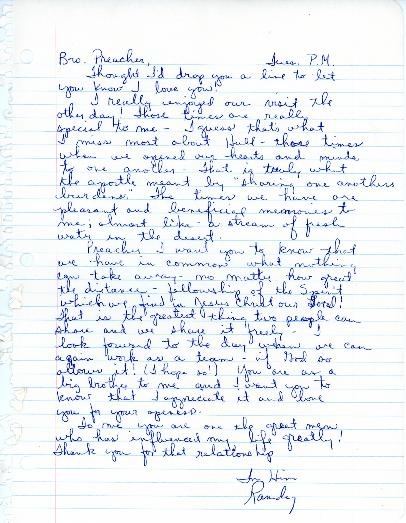 Bro. Preacher, Tues. P.M.
Thought I'd drop you a line to let
you know I love you!
I really enjoyed our visit the
other day! Those times are really
special to me - I guess that's what
I miss most about Hull - those times
when we opened our hearts and minds
to one another. That is truly what
the apostle meant by "sharing one anothers
burdens." The times we have are
pleasant and beneficial memories to
me; almost like a stream of fresh
water in the desert.
Preacher I want you to know that
we have in common what nothing
can take away - no matter how great
the distance - fellowship of the Spirit
which we find in Jesus Christ our Lord!
That is the greatest thing two people can
share and we share it freely - I
look forward to the day when we can
again work as a team - if God so
allows it! (I hope so!) You are as a
big brother to me and I want you to
know that I appreciate it and love
you for your openess.
To me you are one the great men
who has influenced my life greatly!
Thank you for that relationship
In Him
Randy